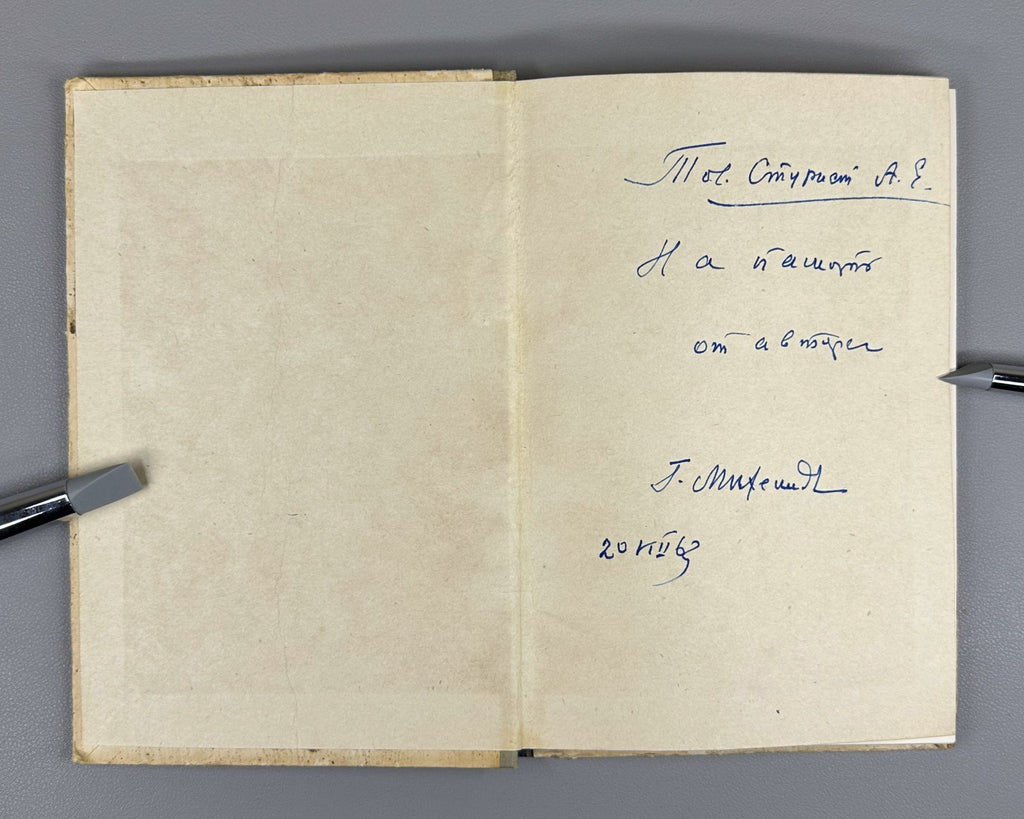 Тов. Стурит А. Е.
На память
от автора
Г. Михеил
20 VII 63